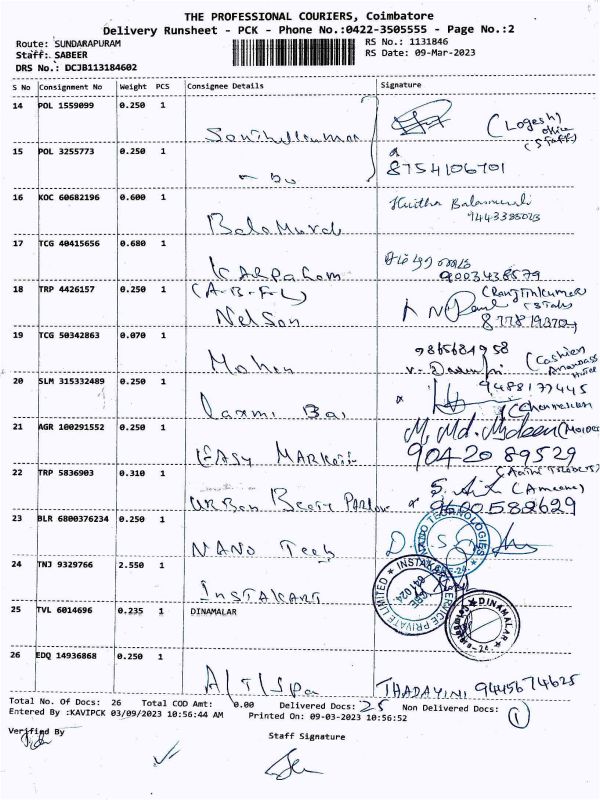 THE PROFESSIONAL COURIERS, Coimbatore
Delivery Runsheet - PCK - Phone No.:0422-3505555 - Page No.:2
Route: SUNDARAPURAM
RS No.: 1131846
Staff: SABEER
RS Date: 09-Mar-2023
DRS No.: DCJB113184602
S No Consignment No Weight PCS Consignee Details Signature
14 POL 1559099 0.250 1
(Logesh)
office
(Staff)
15 POL 3255773 0.250 1
8754106701
16 KOC 60682196 0.600 1
Balamurali
17 TCG 40415656 0.680 1
Karpagam
9003438579
18 TRP 4426157 0.250 1 (A-B-F-L)
Nelson
19 TCG 50342863 0.070 1
Mohan
9865684958
(Cashier
20 SLM 315332489 0.250 1
Laxmi Bai
9488177445
21 AGR 100291552 0.250 1
EASY Market
M. Md.
90420 89529
22 TRP 5836903 0.310 1
URBan Beauty Parlour
9600588629
23 BLR 6800376234 0.250 1
NANO Tech
NANO TECHNOLOGIES
24 TNJ 9329766 2.550 1
INSTAKART
INSTAKART SERVICE PRIVATE LIMITED
641024
25 TVL 6014696 0.235 1 DINAMALAR
DINAMALAR
26 EDQ 14936868 0.250 1
A/T/Spa
THADAYINI 9445674625
Total No. Of Docs: 26 Total COD Amt: 0.00 Delivered Docs: 25 Non Delivered Docs: 1
Entered By :KAVIPCK 03/09/2023 10:56:44 AM Printed On: 09-03-2023 10:56:52
Verified By
Staff Signature